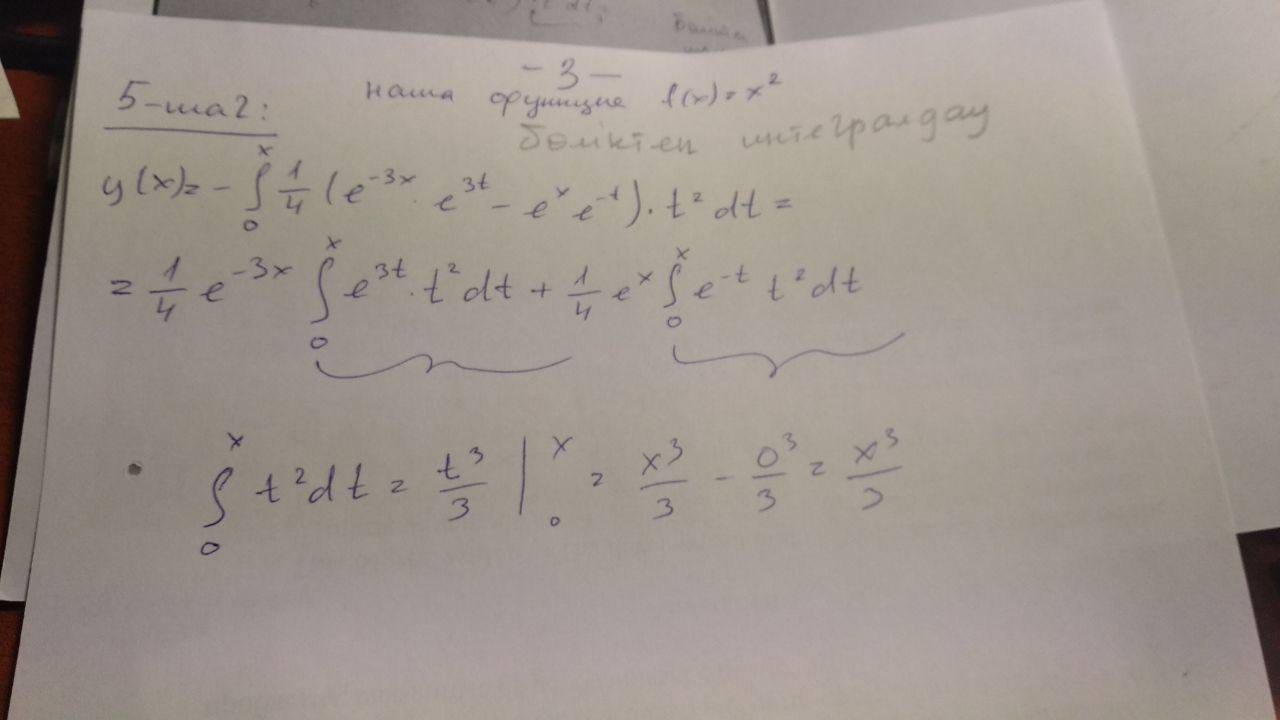 - 3 -
5-шаг: наша функция f(x) = x²
бөліктеп интегралдау
y(x) = - ∫₀ˣ 1/4 (e⁻³ˣ · e³ᵗ - eˣ e⁻ᵗ) · t² dt =
= 1/4 e⁻³ˣ ∫₀ˣ e³ᵗ · t² dt + 1/4 eˣ ∫₀ˣ e⁻ᵗ t² dt
∫₀ˣ t² dt = t³/3 |₀ˣ = x³/3 - 0³/3 = x³/3